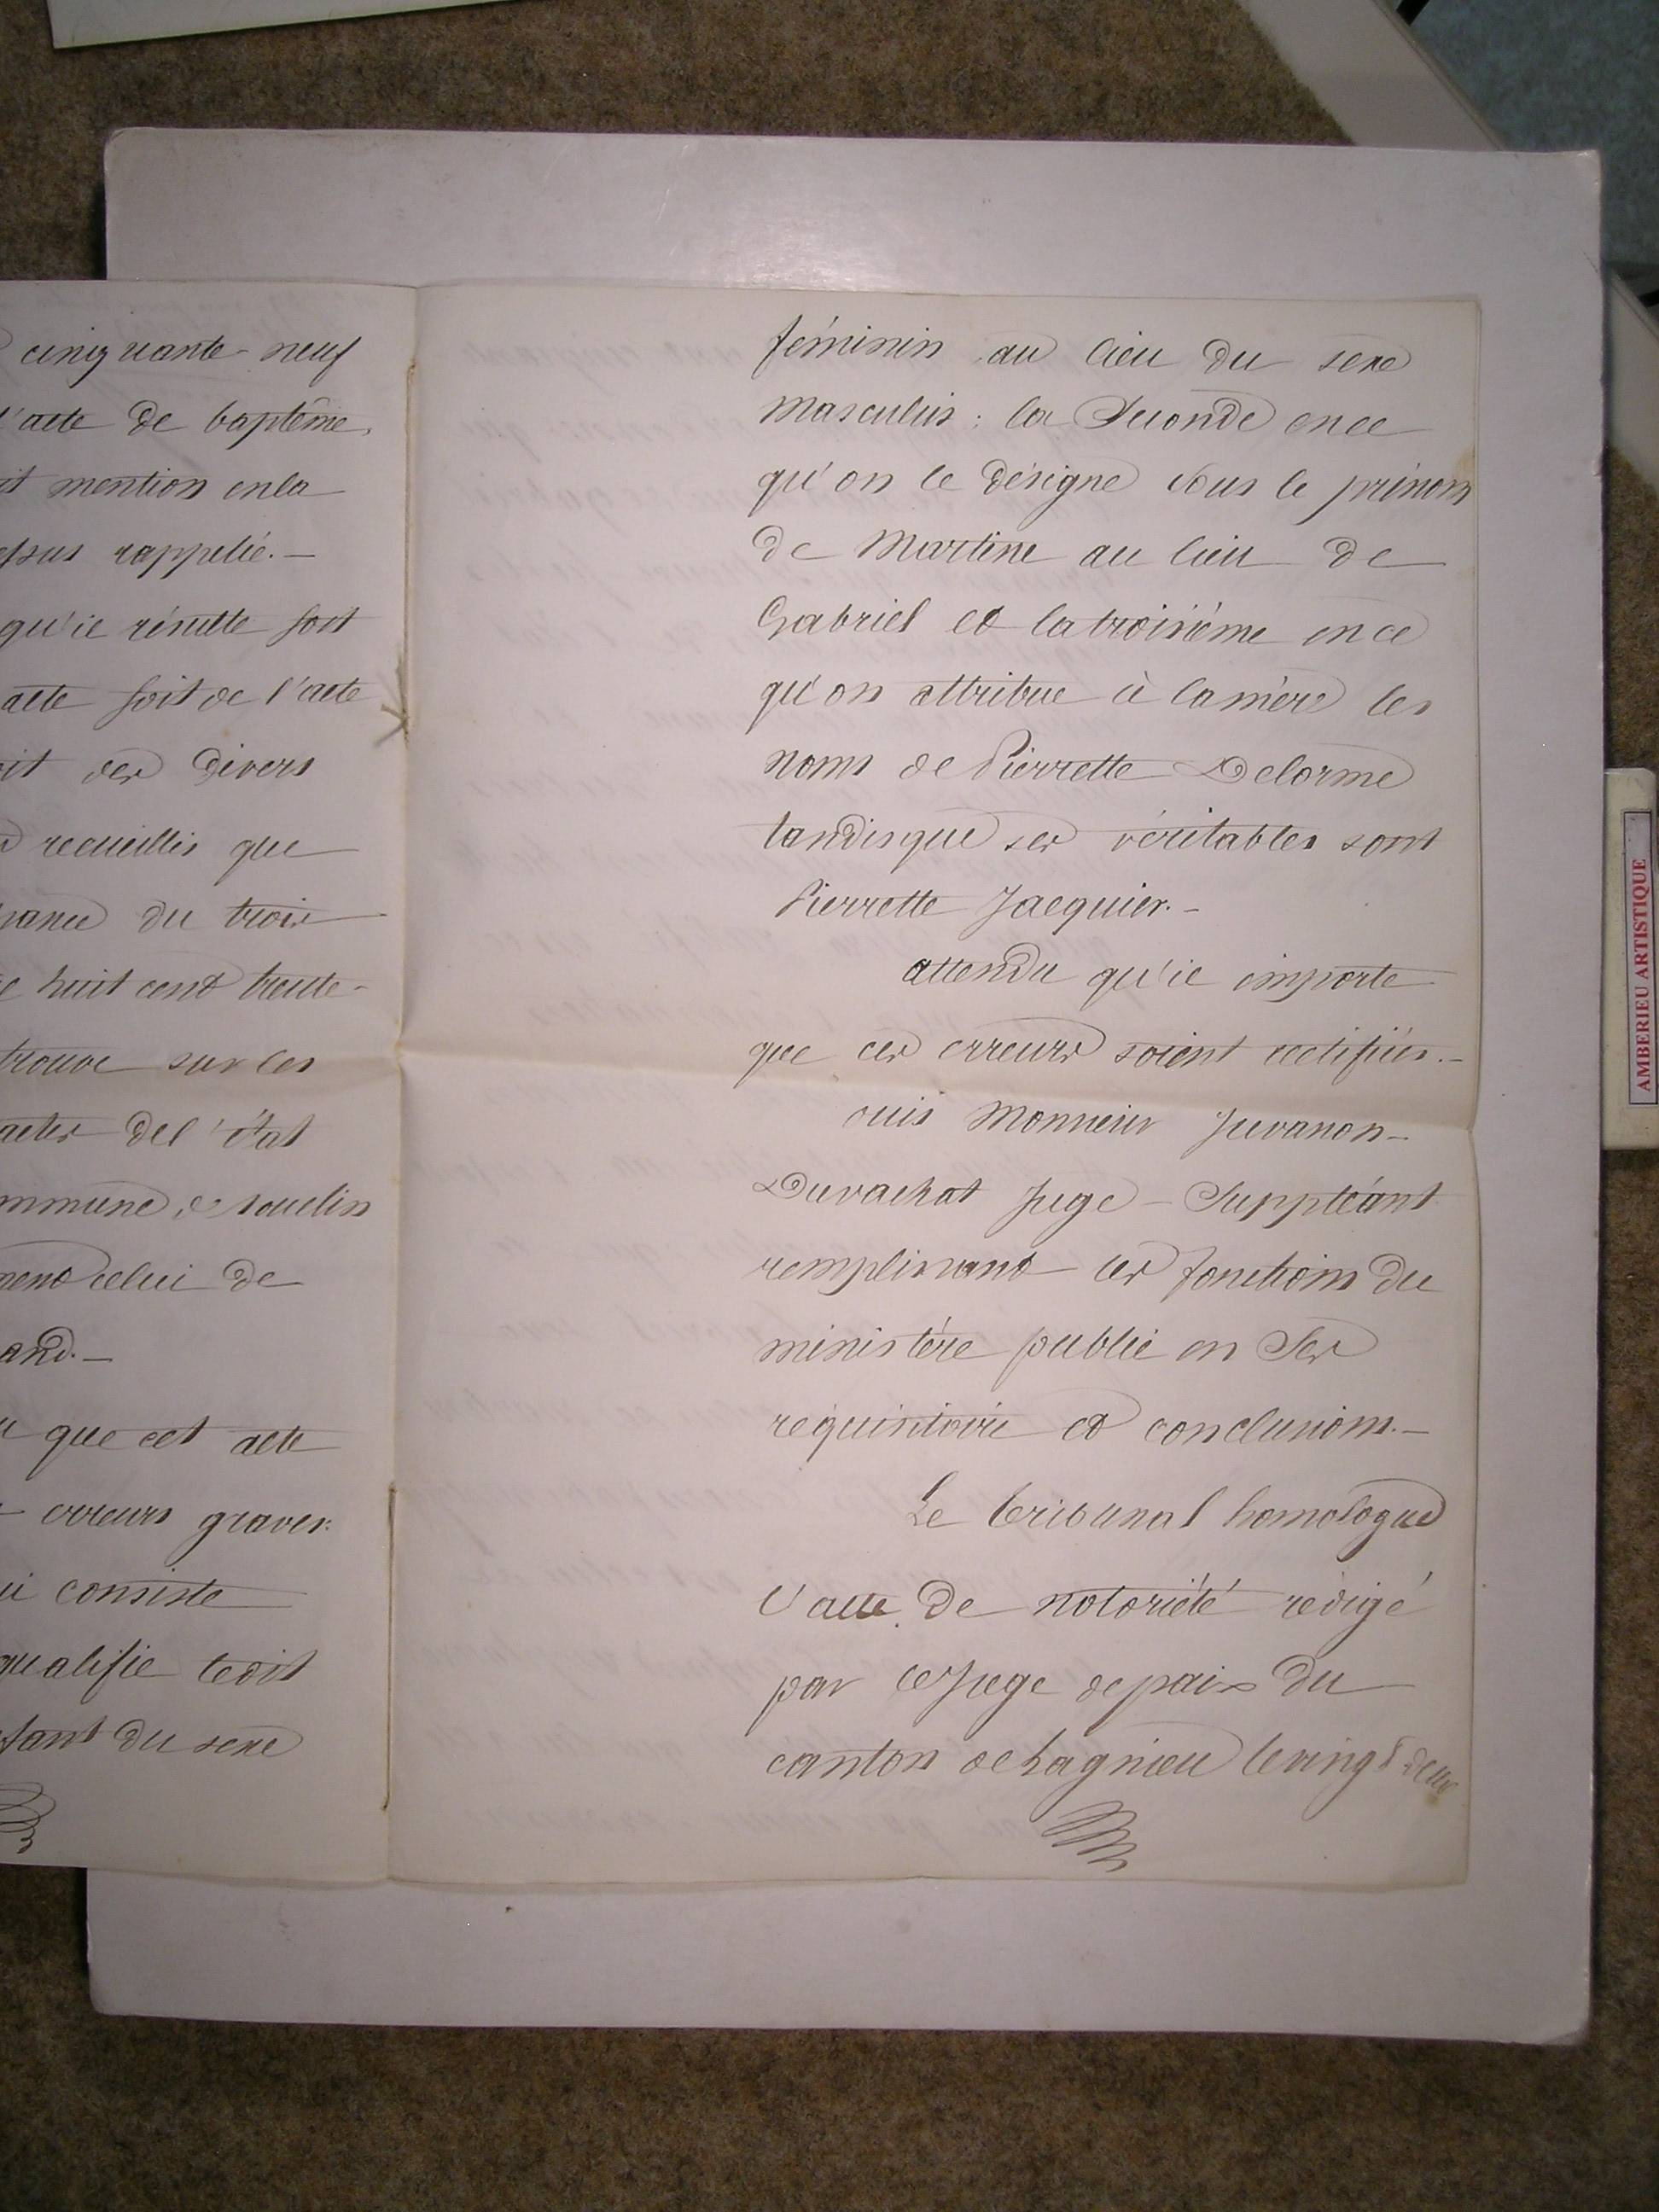 cinquante-neuf
l'acte de baptême,
mention en la
rappelé.-
qu'il résulte soit
acte soit de l'acte
des divers
recueillis que
du trois
huit cent trente-
trouve sur les
actes de l'état
de souclin
celui de
que cet acte
erreurs graves:
consiste
qualifie ledit
du sexe
féminin au lieu du sexe
masculin; la Seconde en ce
qu'on le désigne sous le prénom
de Martine au lieu de
Gabriel et la troisième en ce
qu'on attribue à la mère les
noms de Pierrette Delorme
tandis que ses véritables sont
Pierrette Jacquier.-
attendu qu'il importe
que ces erreurs soient rectifiées.-
ouis Monsieur Juvanon-
Duvachat Juge-Suppléant
remplissant les fonctions du
ministère public en Ses
réquisitoire et conclusions.-
Le tribunal homologue
l'acte de notoriété rédigé
par le Juge de paix du
canton de Lagnieu le vingt deux
AMBERIEU ARTISTIQUE